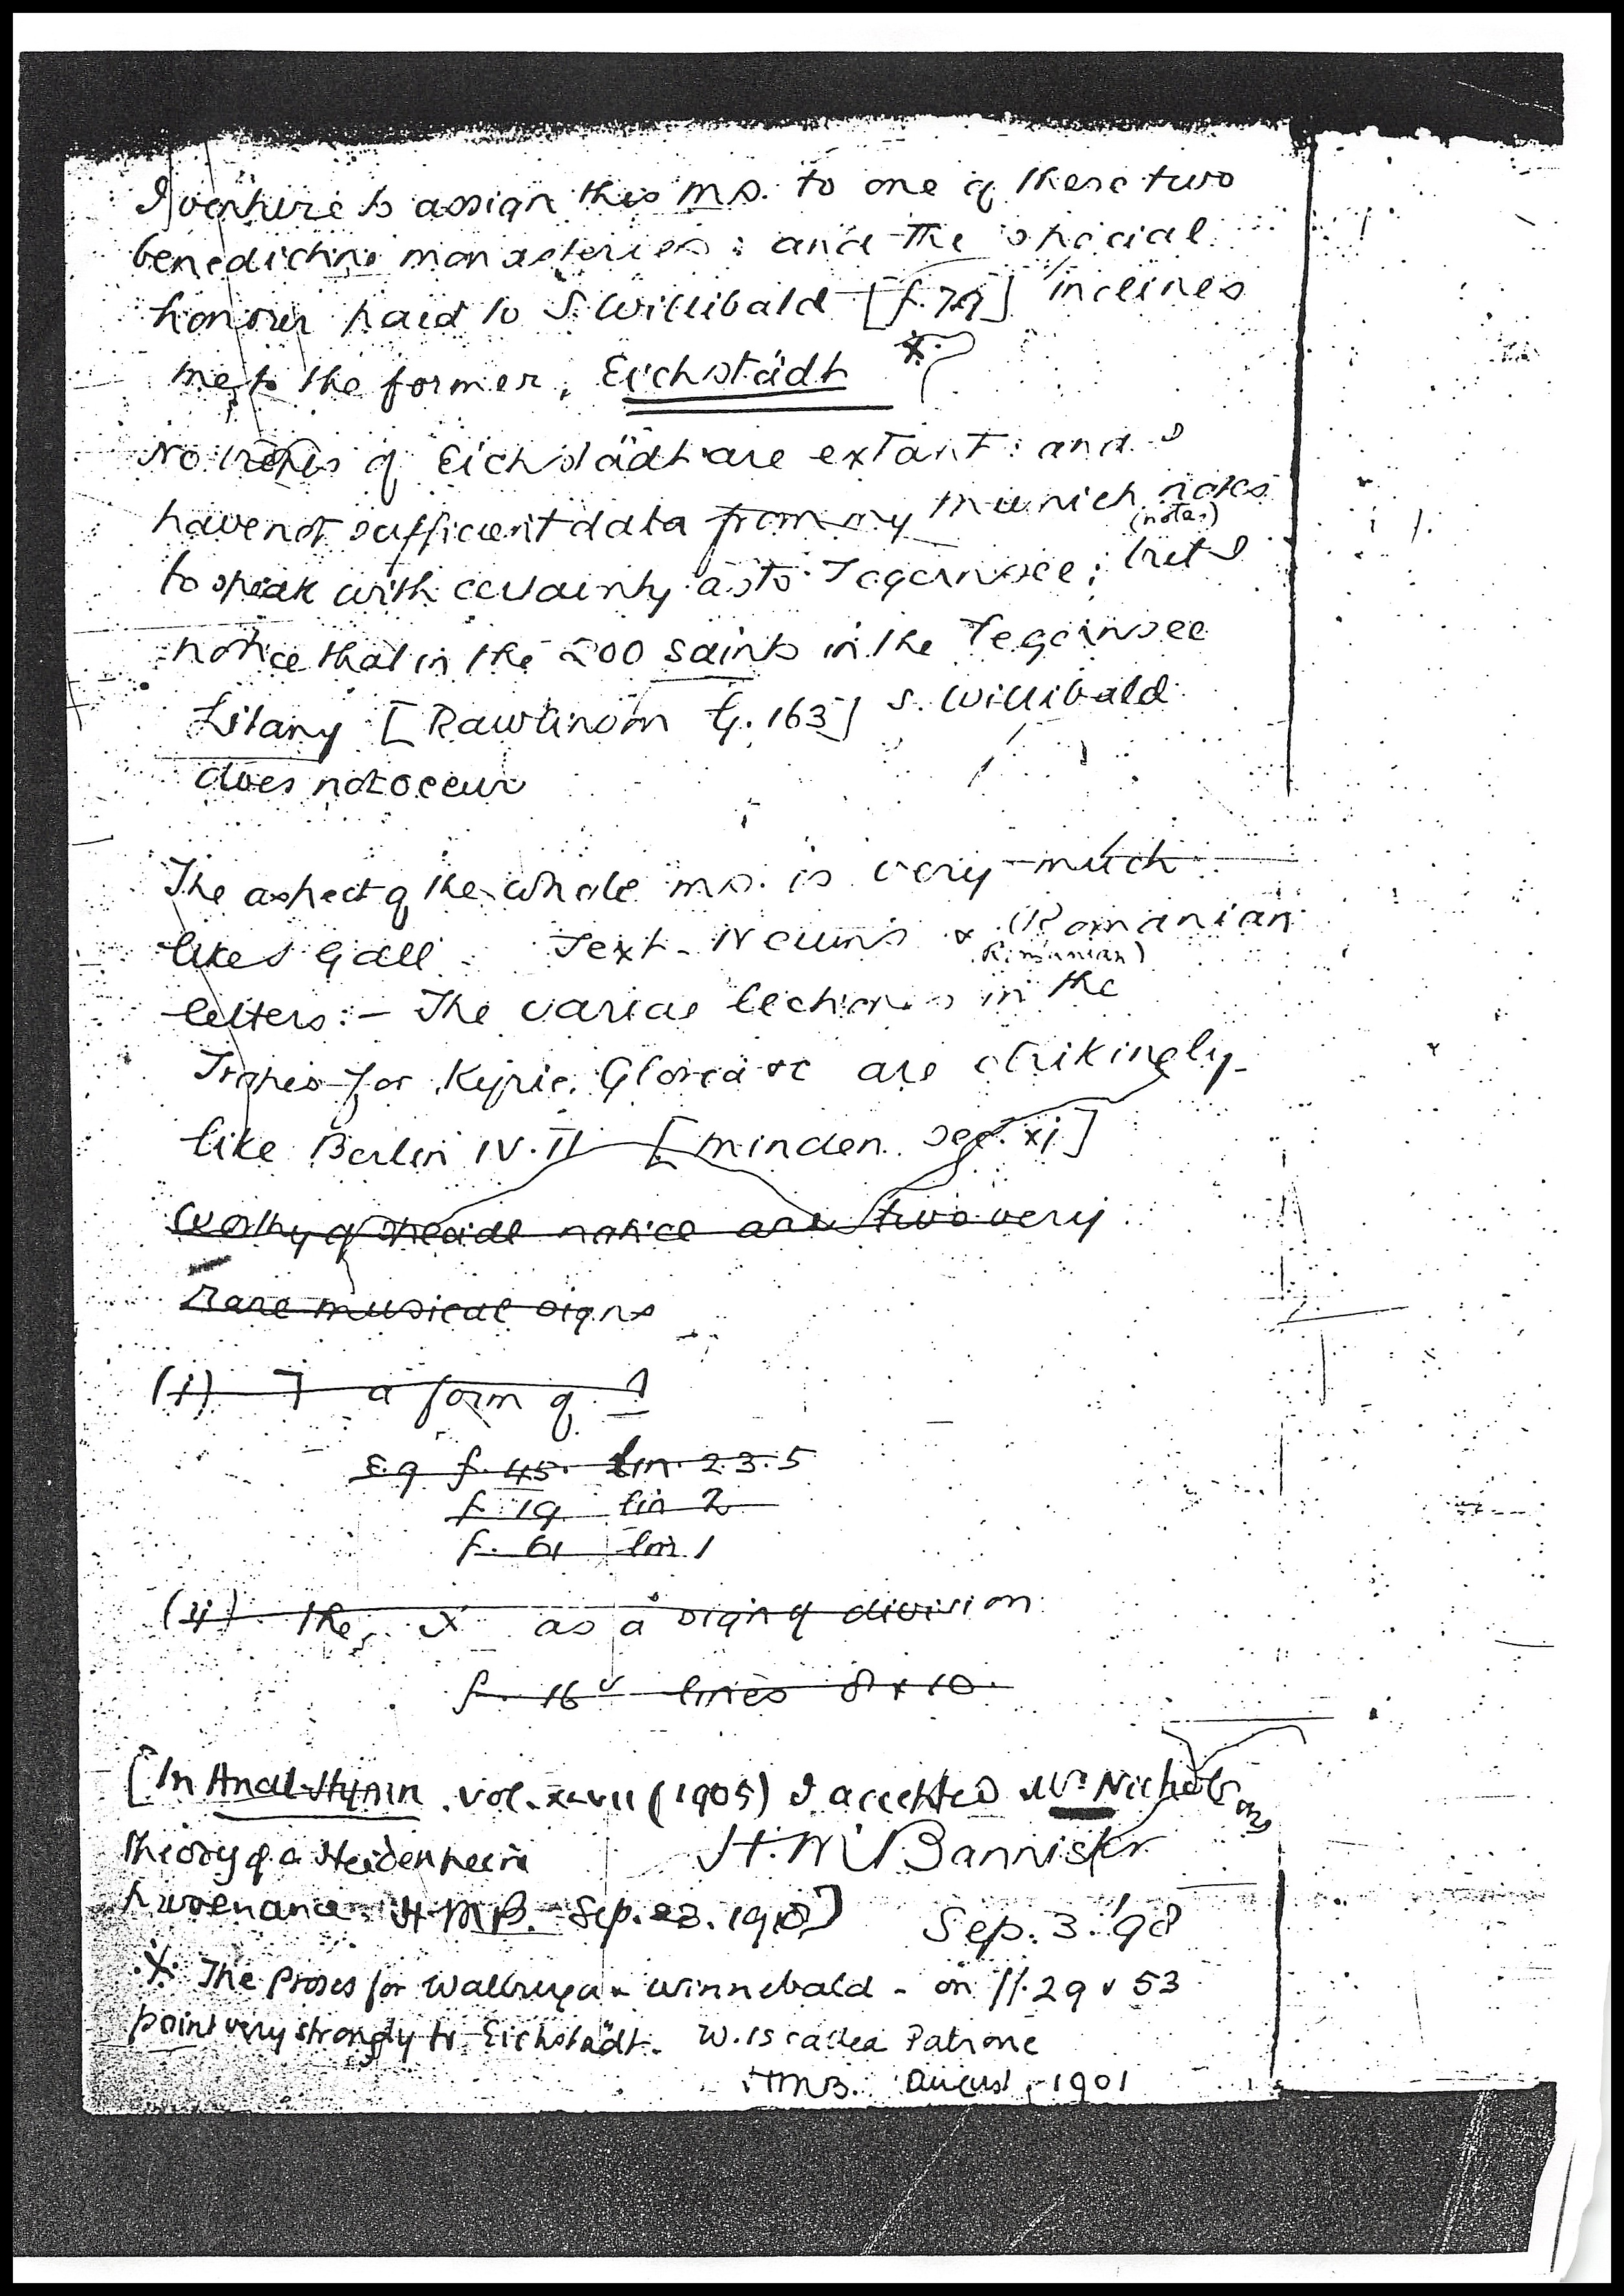 I venture to assign this MS. to one of these two
benedictine monasteries: and the special
honour paid to S. Willibald [f. 79] inclines
me to the former, Eichstädt *
No tropes of Eichstädt are extant: and I
have not sufficient data from my Munich notes
(notes)
to speak with certainty as to Tegernsee; but I
notice that in the 200 saints in the Tegernsee
Litany [Rawlinson G. 163] S. Willibald
does not occur
The aspect of the whole ms. is very much
like S Gall. Text - Neums & (Romanian
Rumanian)
letters:- The variae lectiones in the
Tropes for Kyrie, Gloria &c are strikingly
like Berlin IV. 11 [Minden. sec. xi]
Worthy of special notice are two very
Rare musical signs
(i) a form of
E.g f. 45. lin. 2. 3. 5
f. 19 lin 2
f. 61 lin. 1
(ij) the x as a sign of division
f. 16v lines 8 & 10.
[In Anal. Hymn. vol. xlvii (1905) I accepted Mr. Nicholson's
theory of a Heidenheim
provenance. H.M.B. Sep. 23. 1910]
H. M. Bannister
Sep. 3. '98
X. The Proses for Walburga & Winnebald - on ff. 29 & 53
point very strongly to Eichstädt. W. is called Patrone
HMB. August, 1901